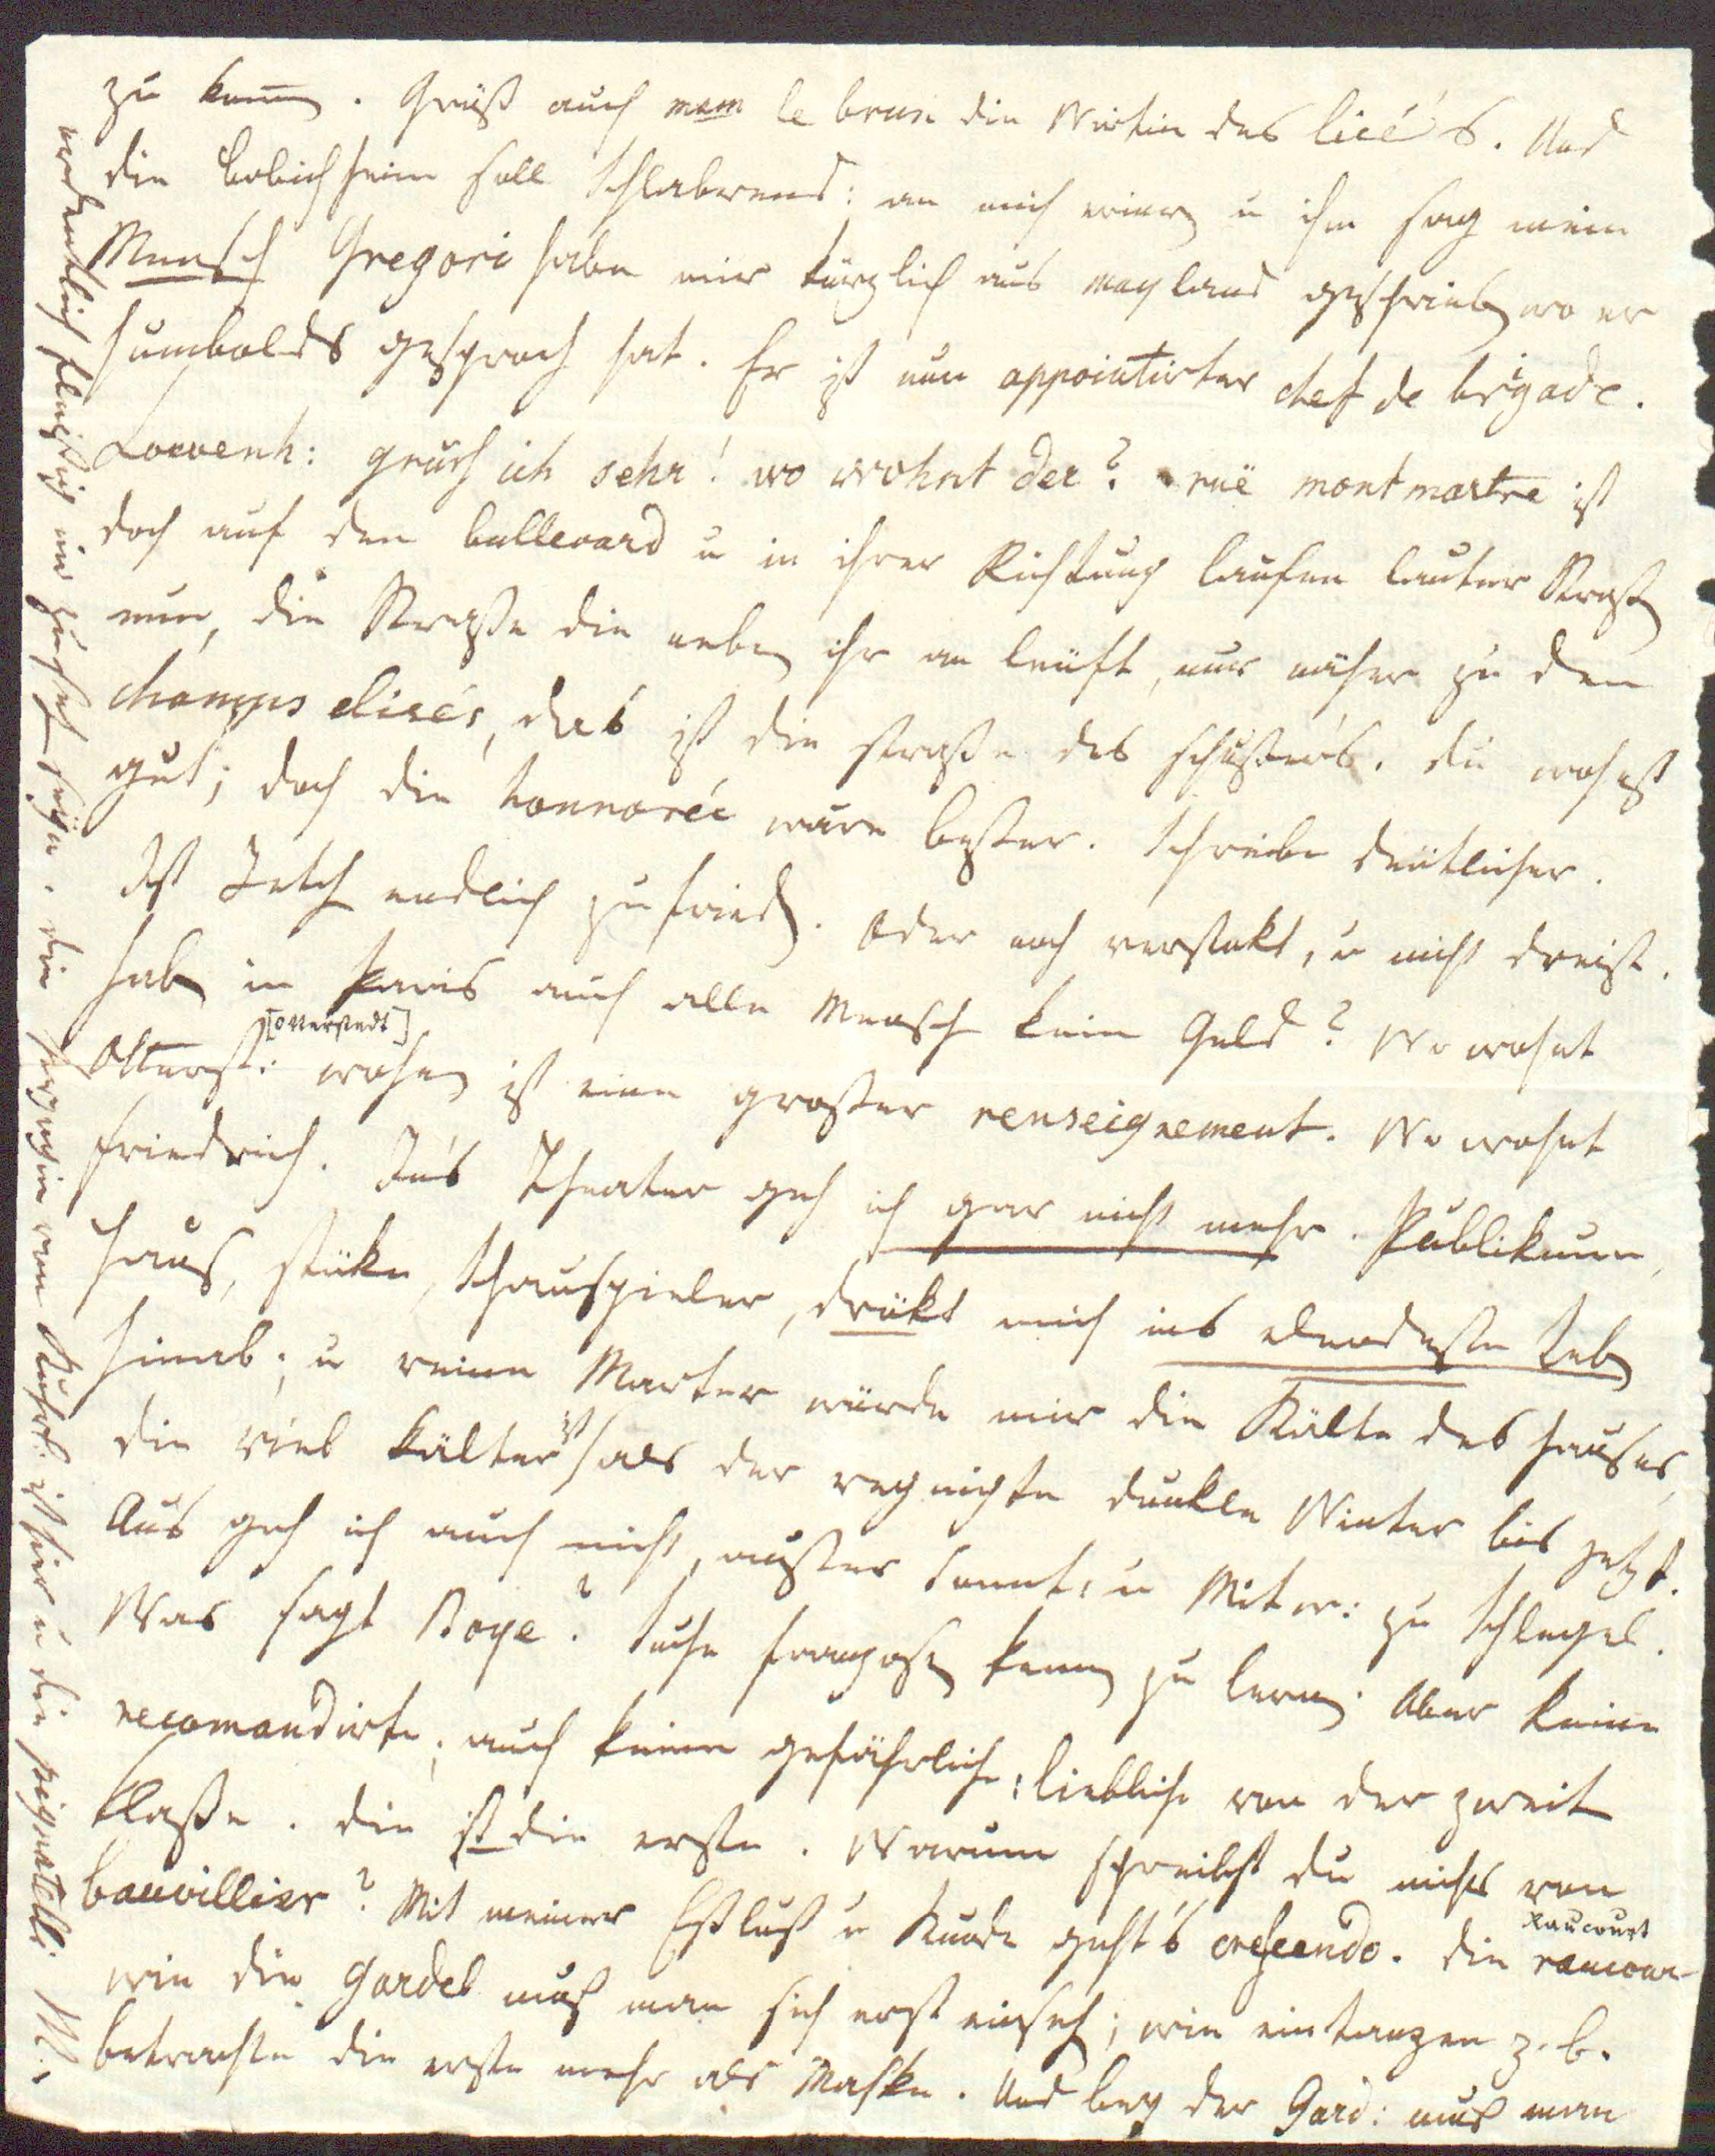 zu kenen. Grüß auch mam le brun die Wirtin des licé's. Und
die bolichheim soll Schlabrend: an mich erinern u ihm sagen mein
Mensch Gregori habe mir kürzlich aus mayland geschrieben wo er
humbolds gesprochen hat. Er ist nun appointirter chef de brigade.
Loevenh: gruße ich sehr! wo wohnt der? rüe montmartre ist
doch auf den bullevard u in ihrer Richtung laufen lauter Straßen
nun, die Straße die neben ihr an läuft, nur näher zu den
champs elisés, das ist die straße des schusters. du wohnst
gut; doch die honnorée wäre besser. Schreibe deütlicher.
Ist Jetch endlich zufrieden. Oder noch verstokt, u nicht dreist.
haben in Paris auch alle Menschen kein Geld? Wo wohnt
[Otterstedt]
Otterst: wohnen ist eine großer renseignement. Wo wohnt
Friedrich. In's Theater geh ich gar nicht mehr. Publikum,
Haus, stüke, Schauspieler, drükt mich ins elendeste Leben
hinab; u reine Marter würde mir die Kälte des Hauses,
die viel kälter ist als der regnichte dunkle Winter bis jetzt.
Aus geh ich auch nicht, außer Sonnt: u Mitw: zu Schlegel.
Was sagt Boye? Suche franzosen kenen zu lernen. Aber keine
recomandirte; auch keine gefährliche; liebliche von der zweiten
Klaße. die ist die erste. Warum schreibst du nichts von
bauvillier? Mit meiner Eßlust u Kunde geht's crescendo. die raucour
Raucourt
wie die Gardel muß man sich erst einsehen; wie eintanzen z. b.
betrachte die erste mehr als Maske. Und bey der Gard: muß man
ordentlich fleißig im zusehen seyn. die herzogin von Kurl: ist hier u die pignatelli. M: